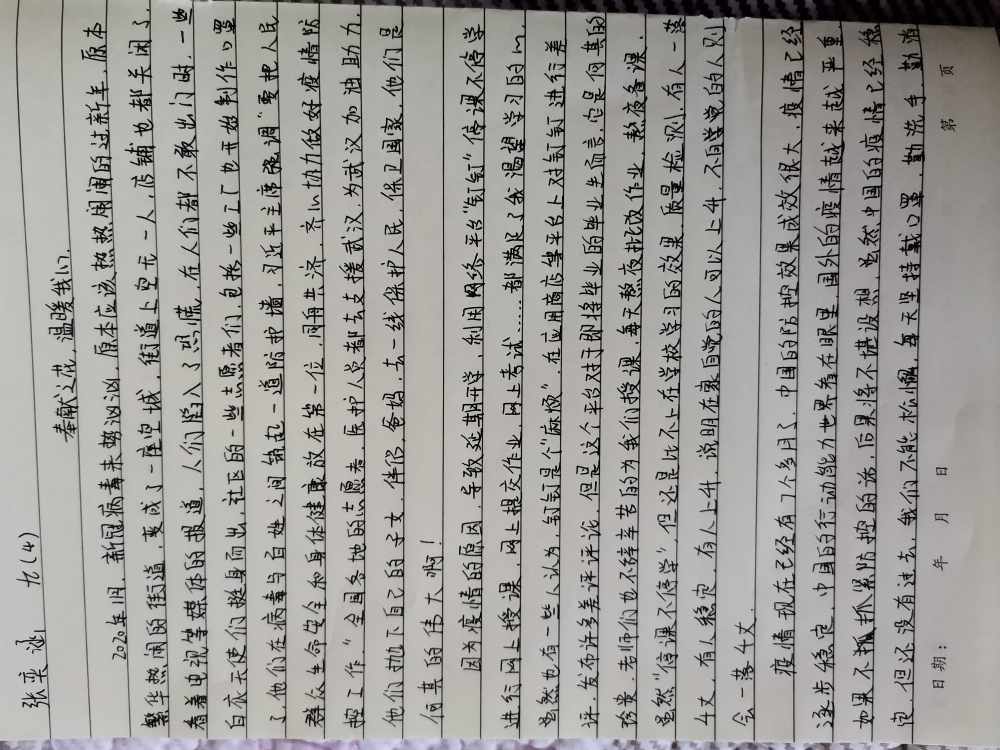 张奕 九(4)
奉献之花，温暖我心
2020年1月，新冠病毒来势汹汹，原本应该热热闹闹的过新年，原本
繁华热闹的街道，变成了一座空城，街道上空无一人，店铺也都关闭了，
看着电视等媒体的报道，人们陷入了恐慌，在人们都不敢出门时，一些
白衣天使们挺身而出，社区的一些志愿者们，包括一些工厂也开始制作口罩
了，他们在病毒与百姓之间筑起一道防护墙，习近平主席强调“要把人民
群众生命安全和身体健康放在第一位，同舟共济，齐心协力做好疫情防
控工作”全国各地的志愿者，医护人员都去支援武汉，为武汉加油助力，
他们抛下自己的子女，伴侣，爸妈，去一线保护人民，保卫国家，他们是
何其的伟大啊！
因为疫情的原因，导致延期开学，利用网络平台“钉钉”停课不停学
进行网上授课，网上提交作业，网上考试……都满足了我渴望学习的心，
虽然也有一些人认为，钉钉是个“麻烦”，在应用商店等平台上对钉钉进行差
评，发布许多差评评论，但是这个平台对于即将毕业的毕业生而言，它是何其的
珍贵，老师们也不辞辛苦的为我们授课，每天熬夜批改作业，熬夜备课，
虽然“停课不停学”，但还是比不上在学校学习的效果，质量检测，有人一落
千丈，有人稳定，有人上升，说明在家自觉的人可以上升，不自觉的人则
会一落千丈．
疫情现在已经有7个多月了，中国的防控效果成效很大，疫情已经
逐步稳定，中国的行动能力世界看在眼里，国外的疫情越来越严重
如果不抓紧防控的话，后果将不堪设想，虽然中国的疫情已经稳
定，但还没有过去，我们不能松懈，每天坚持戴口罩，勤洗手，勤消
日期： 年 月 日 第 页